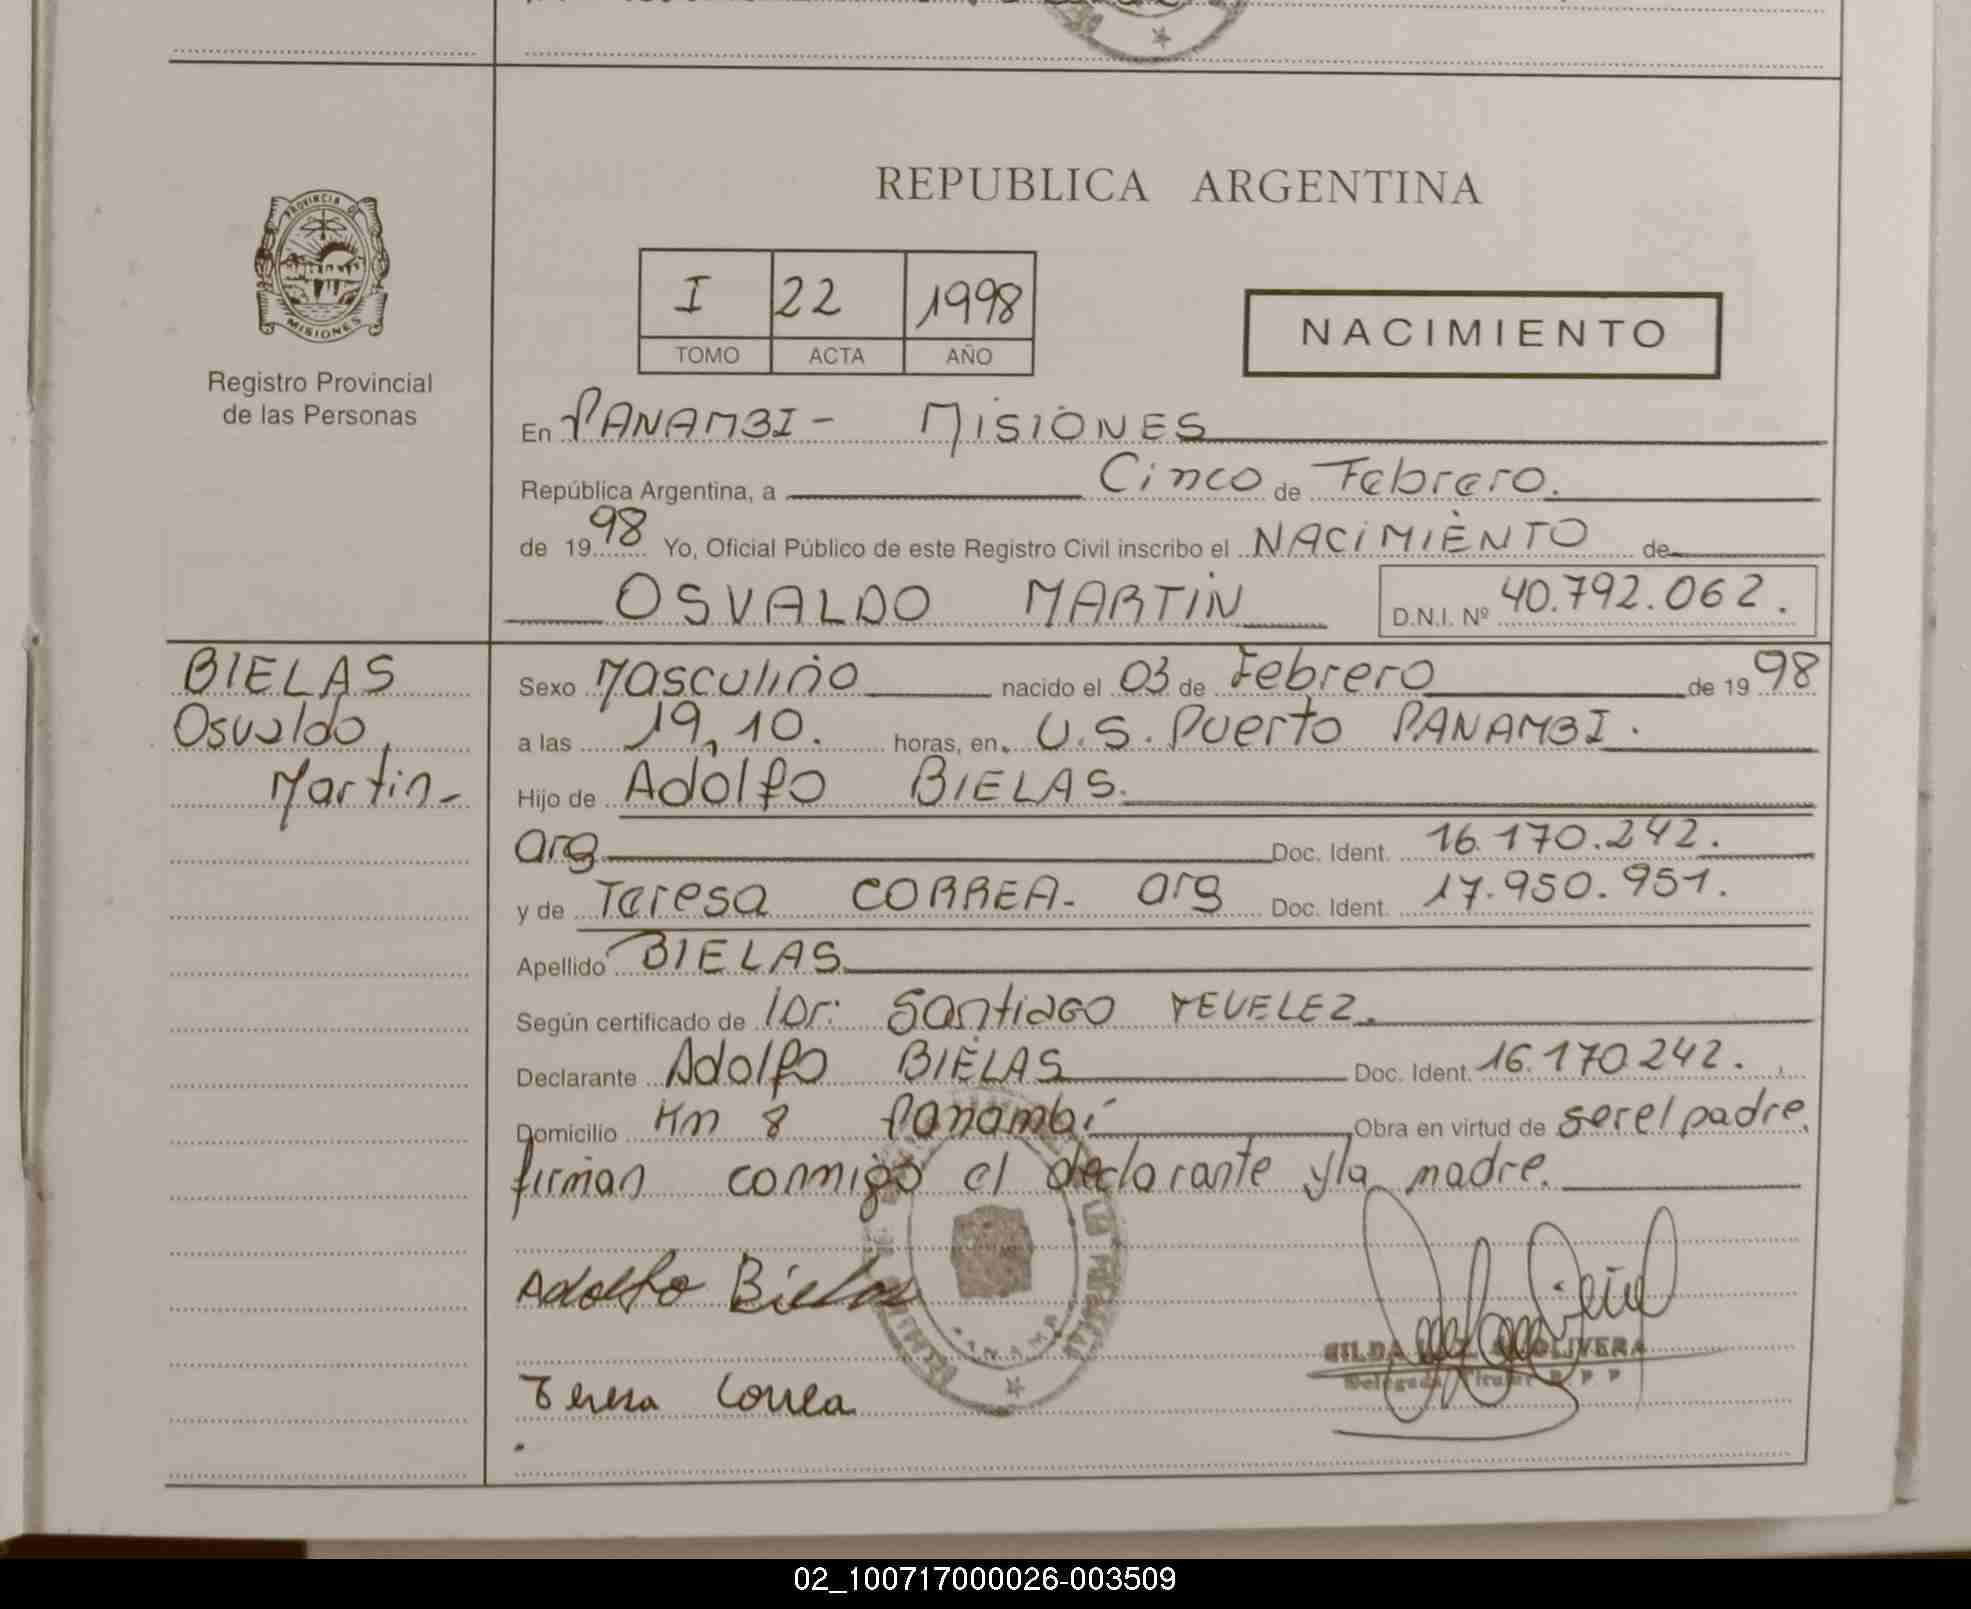 REPUBLICA ARGENTINA
PROVINCIA DE
MISIONES
Registro Provincial
de las Personas
I 22 1998
TOMO ACTA AÑO
NACIMIENTO
En PANAMBI - MISIONES
República Argentina, a Cinco de Febrero.
de 1998 Yo, Oficial Público de este Registro Civil inscribo el NACIMIENTO de
OSVALDO MARTIN D.N.I. Nº 40.792.062.
BIELAS
Osvaldo
Martin-
Sexo Masculino nacido el 03 de Febrero de 1998
a las 19,10. horas, en U.S. Puerto PANAMBI.
Hijo de Adolfo BIELAS.
arg Doc. Ident. 16.170.242.
y de Teresa CORREA- arg Doc. Ident. 17.950.951.
Apellido BIELAS
Según certificado de Dr: Santiago
Declarante Adolfo BIELAS Doc. Ident. 16.170.242.
Domicilio Km 8 Panambí Obra en virtud de ser el padre.
firman conmigo el declarante y la madre.
Adolfo Bielas
GILDA OLIVERA
Delegada Titular R. P. P
Teresa Correa
02_100717000026-003509